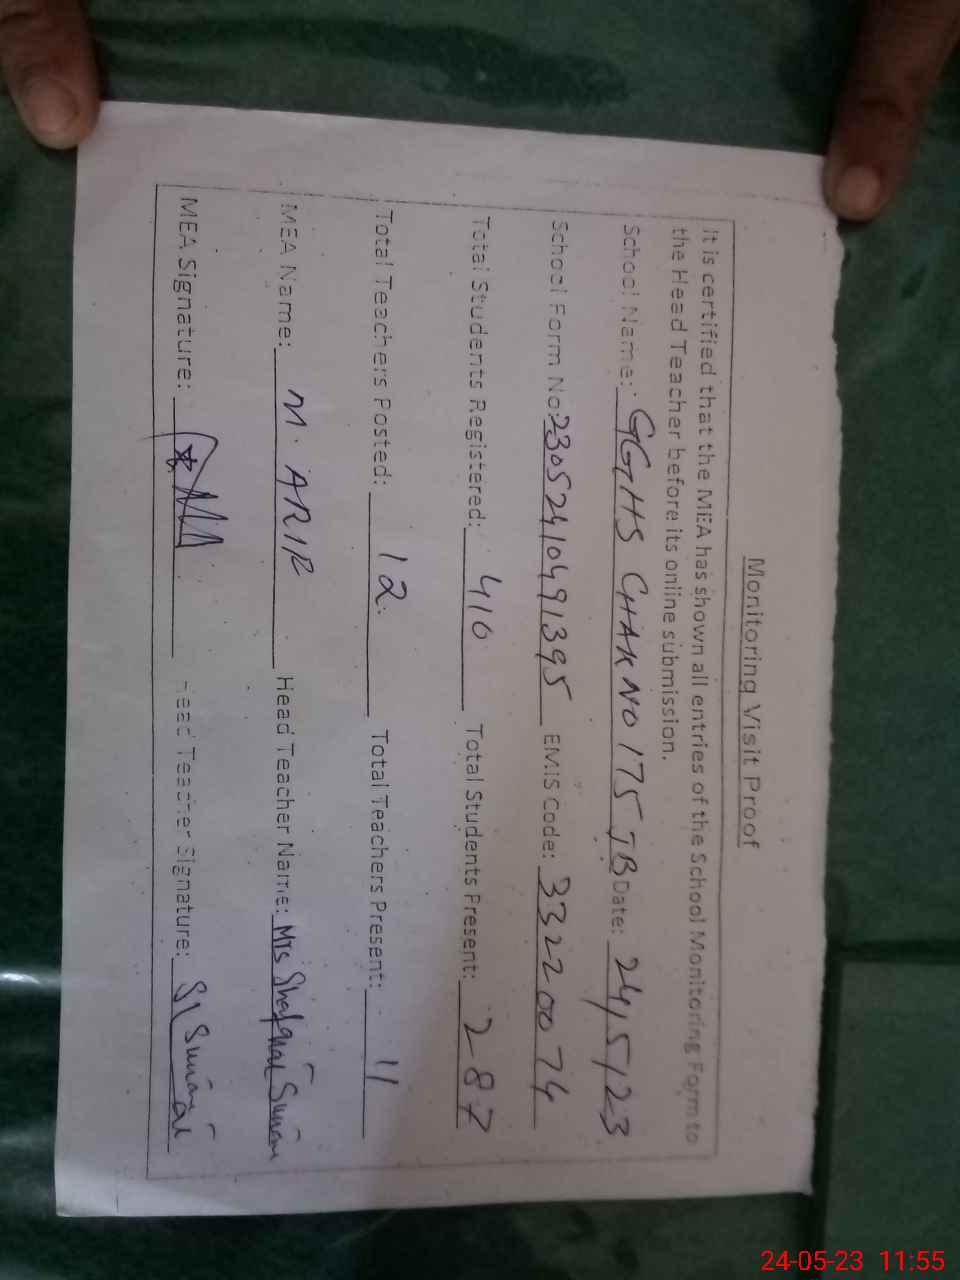 Monitoring Visit Proof
It is certified that the MEA has shown all entries of the School Monitoring Form to
the Head Teacher before its online submission.
School Name: GGHS CHAK NO 175 JB Date: 24/5/23
School Form No: 23052410491395 EMIS Code: 33220074
Total Students Registered: 410 Total Students Present: 287
Total Teachers Posted: 12 Total Teachers Present: 11
MEA Name: M. ARIF Head Teacher Name: Mrs
MEA Signature: Head Teacher Signature:
24-05-23 11:55